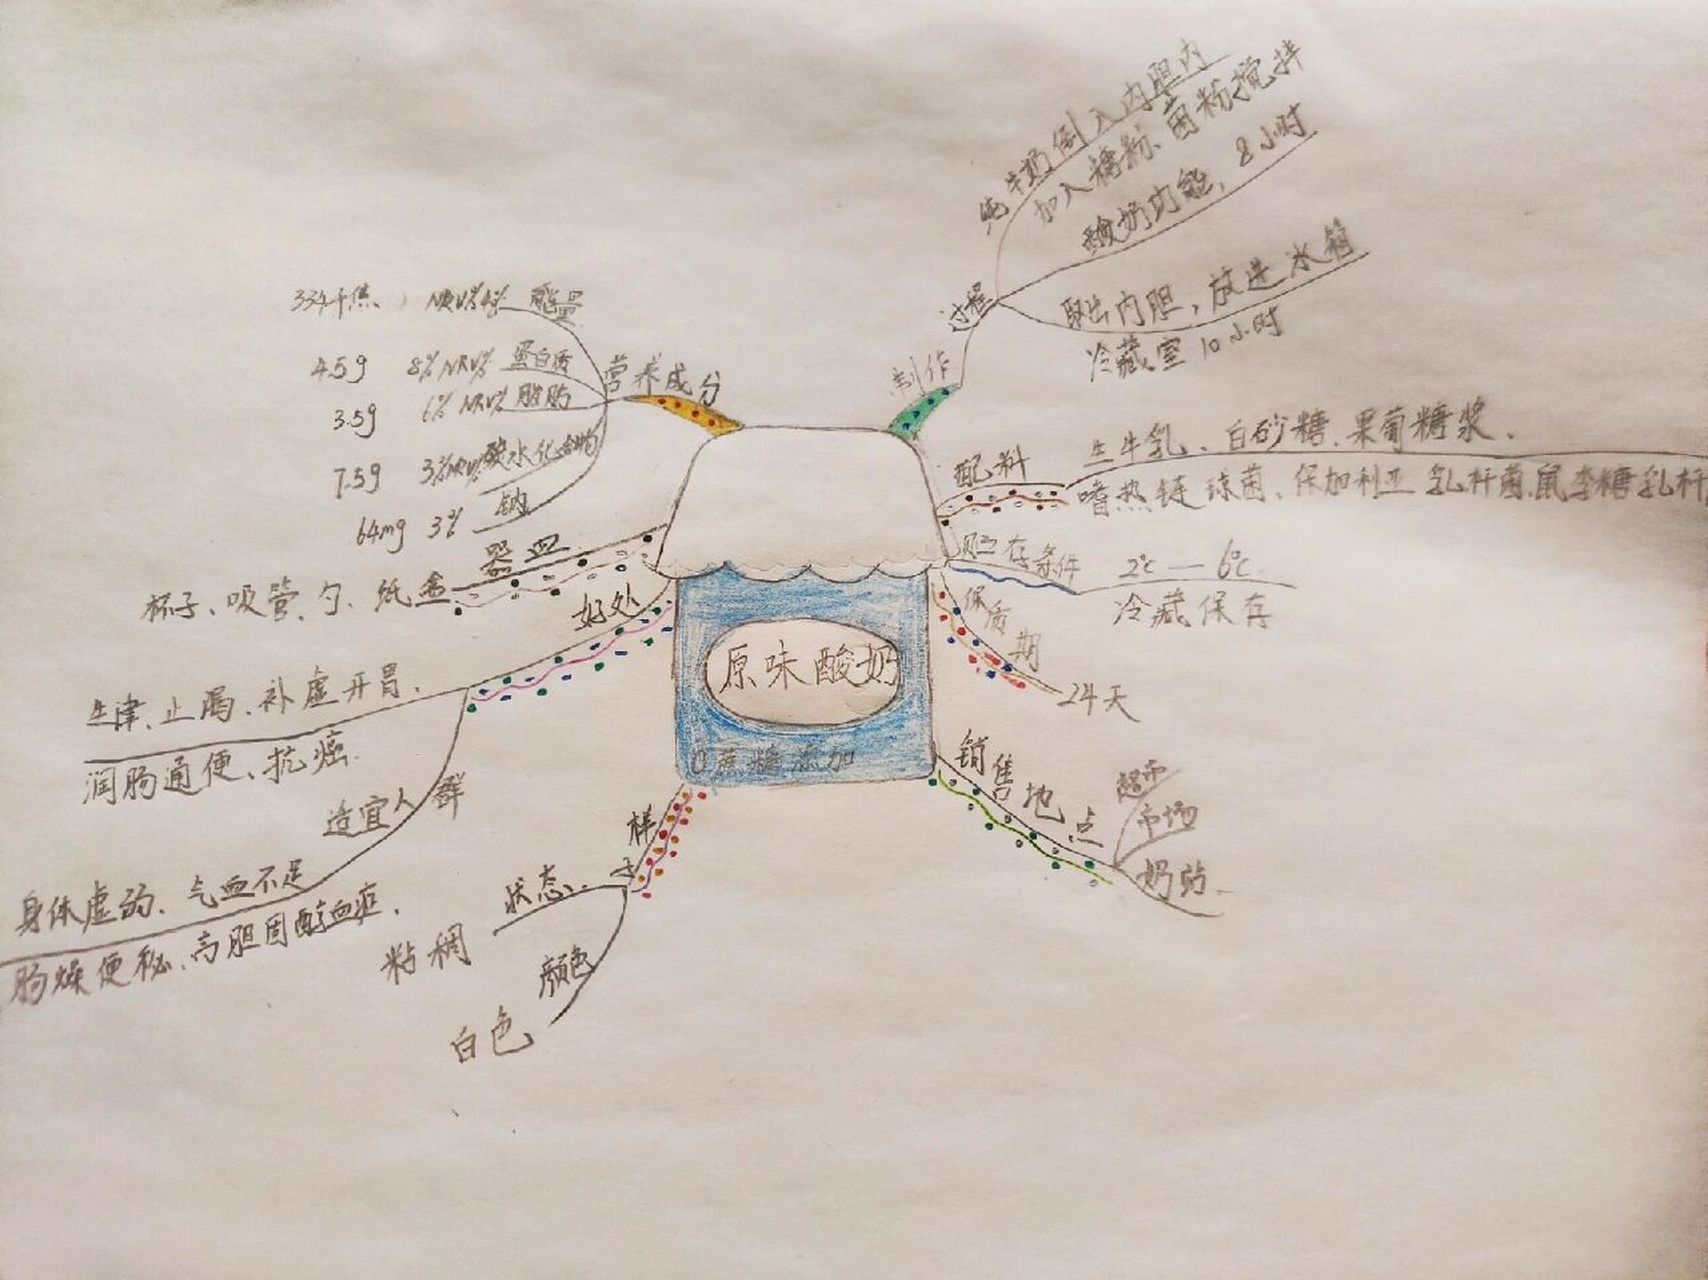 原味酸奶
0蔗糖添加
制作
过程
纯牛奶倒入内胆内
加入糖粉、菌粉搅拌
酸奶功能，8小时
取出内胆，放进冰箱
冷藏室10小时
配料
生牛乳、白砂糖、果葡糖浆、
嗜热链球菌、保加利亚乳杆菌、鼠李糖乳杆
贮存条件
2℃—6℃
冷藏保存
保质期
24天
销售地点
超市
市场
奶站
营养成分
334千焦 NRV%4% 能量
4.5g 8%NRV% 蛋白质
3.5g 6%NRV% 脂肪
7.5g 3%NRV% 碳水化合物
64mg 3% 钠
器皿
杯子、吸管、勺、纸盒
好处
生津、止渴、补虚开胃、
润肠通便、抗癌
适宜人群
身体虚弱、气血不足
肠燥便秘、高胆固醇血症、
样子
状态
粘稠
颜色
白色